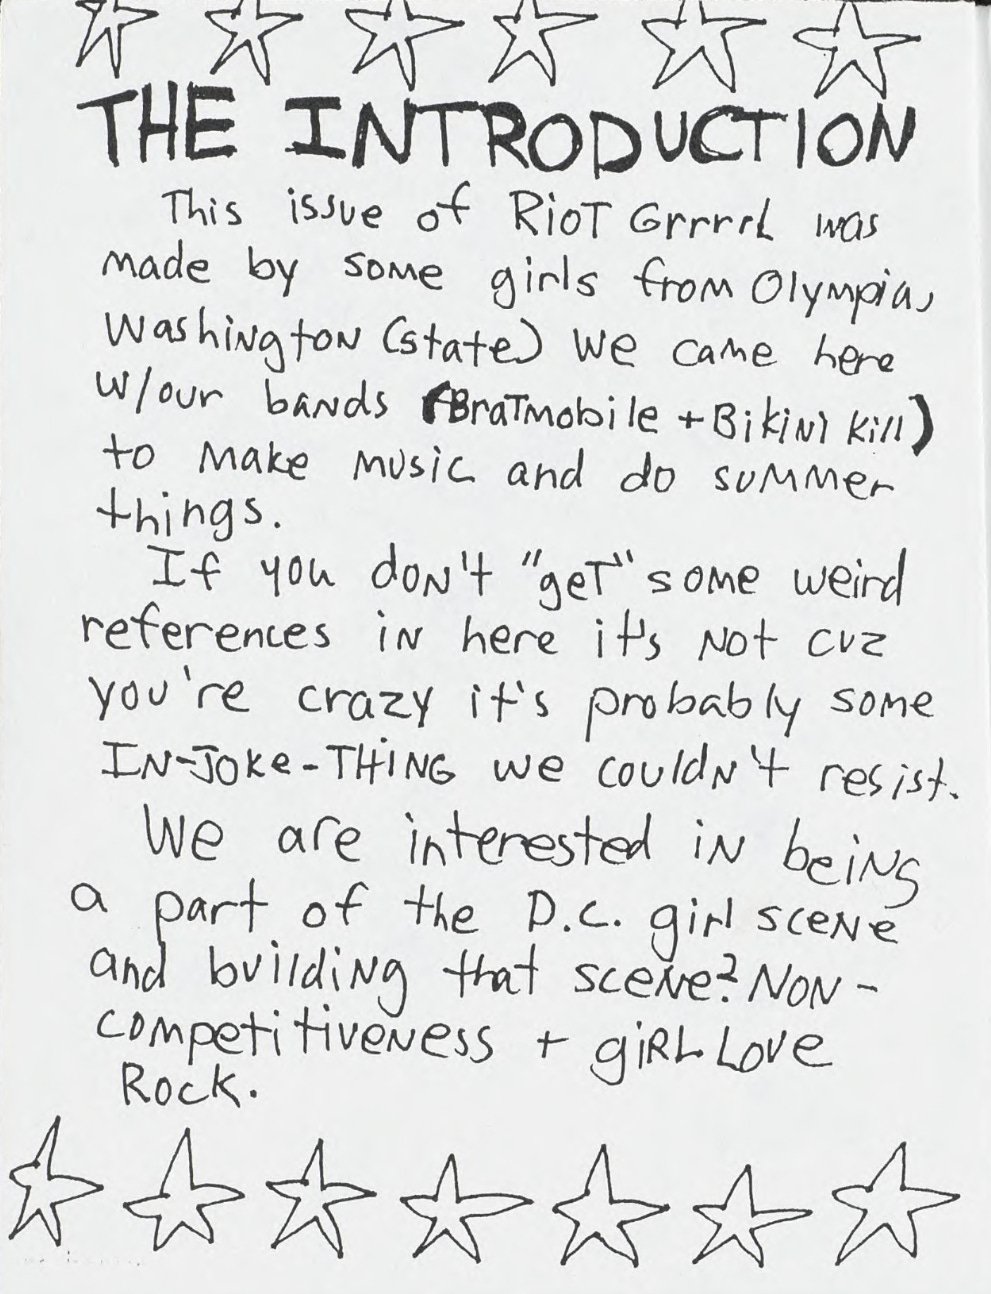 THE INTRODUCTION
This issue of RioT Grrrrl was
made by some girls from Olympia,
Washington (state) We came here
w/our bands (BraTmobile + Bikini kill)
to make music and do summer
things.
If you don't "geT" some weird
references in here it's Not cuz
you're crazy it's probably some
IN-JOKe-THING we couldn't resist.
We are interested in being
a part of the D.C. girl scene
and building that scene? NON-
competitiveness + giRL Love
Rock.